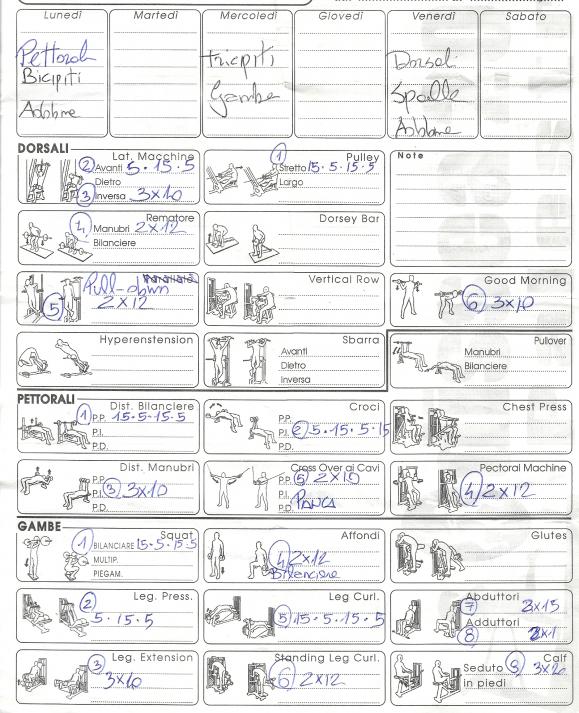 Lunedì
Martedì
Mercoledì
Giovedì
Venerdì
Sabato
Pettorali
Bicipiti
Addome
tricipiti
Gambe
Dorsali
Spalle
Addome
DORSALI
Lat. Macchine
② Avanti 5 · 15 · 5
Dietro
③ Inversa 3x10
① Pulley
Stretto 15 · 5 · 15 · 5
Largo
Note
Rematore
④ Manubri 2x12
Bilanciere
Dorsey Bar
Pull-down
⑤ 2x12
Vertical Row
Good Morning
⑥ 3x10
Hyperenstension
Sbarra
Avanti
Dietro
inversa
Pullover
Manubri
Bilanciere
PETTORALI
Dist. Bilanciere
① P.P. 15·5·15·5
P.I.
P.D.
Croci
P.P.
P.I. ② 5·15·5·15
P.D.
Chest Press
Dist. Manubri
P.P.
P.I. ③ 3x10
P.D.
Cross Over ai Cavi
P.P. ⑤ 2x10
P.I. PANCA
P.D.
Pectoral Machine
④ 2x12
GAMBE
Squat
① BILANCIARE 15·5·15·5
MULTIP.
PIEGAM.
Affondi
④ 2x12
Bilanciere
Glutes
Leg. Press.
②
5·15·5
Leg Curl.
⑤ 15·5·15·5
Abduttori
⑦ 2x15
Adduttori
⑧
Leg. Extension
③
3x10
Standing Leg Curl.
⑥ 2x12
Calf
Seduto
3x20
in piedi